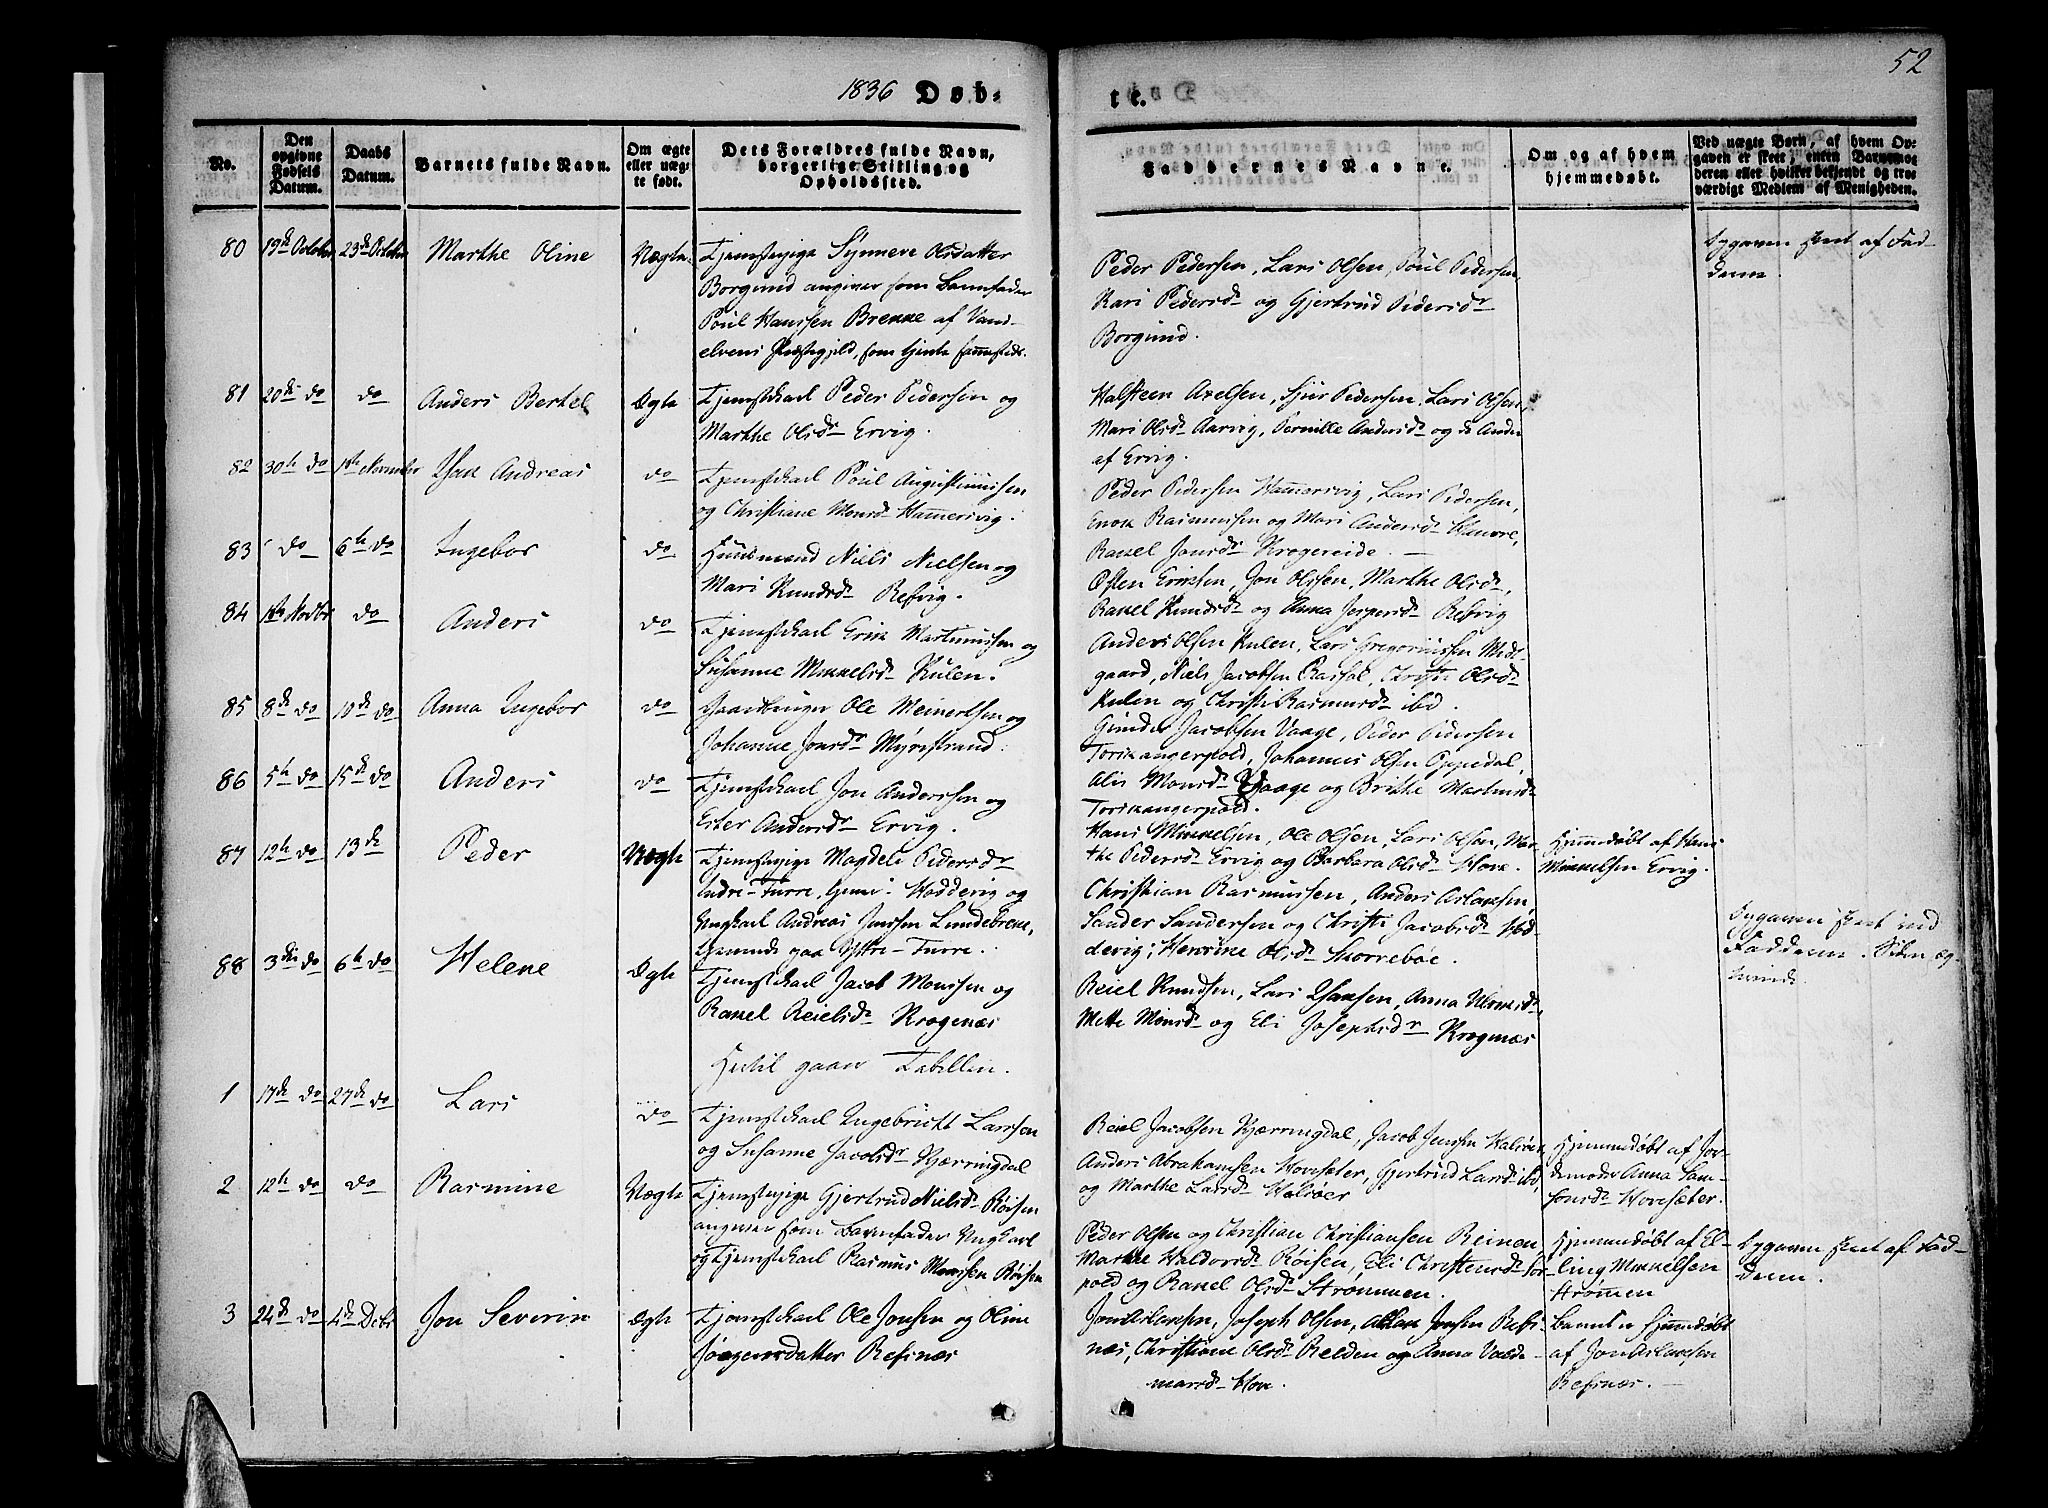 52
1836 Døb-
te.
No.
Den opgivne Fødsels Datum.
Daabs Datum.
Barnets fulde Navn.
Om ægte eller uægte født.
Dets Forældres fulde Navn, borgerlige Stilling og Opholdssted.
Faddernes Navne.
Om og af hvem hjemmedøbt.
Ved uægte Børn, af hvem Opgaven er skeet, enten Barnemoderen eller hvilket bekjendt og troværdigt Medlem af Menigheden.
80 19de October 23de October Marthe Oline Uægte
Tjenestepige Synneve Olsdatter
Borgund angiver som Barnefader
Poul Hanssen Brekke af Vand-
elvens Præstegjeld, som tjente sammesteds.
Peder Pedersen, Lars Olsen, Poul Pedersen,
Kari Pedersdr og Gjertrud Pedersdr
Borgund.
Opgaven skeet af Fad-
derne.
81 20de do do Anders Bertel Ægte
Tjenestekarl Peder Pedersen og
Marthe Olsdr Ervig.
Halsteen Axelsen, Sjur Pedersen, Lars Olsen,
Mari Olsdr Aarvig, Pernille Andersdr og
af Ervig.
82 30te do 1ste November Isak Andreas do
Tjenestekarl Poul Augustinussen
og Christiane Monsdr Hammersvig.
Peder Pedersen Hammersvig, Lars Pedersen,
Enok Rasmussen og Mari Andersdr
Rakel Jonsdr Krogereide.
83 do 6te do Ingebor do
Huusmand Niels Nielsen og
Mari Knudsdr Refvig.
Østen Eriksen, Jon Olssen, Marthe Olsdr,
Rakel Knudsdr og Anna Jespersdr Refvig
84 1ste Novbr do Anders do
Tjenestekarl Erik Martinussen og
Susanne Mikkelsdr Kulen.
Anders Olsen Kulen, Lars Gregoriussen Midt-
gaard, Niels Jacobsen Olsdr
Kulen og Christi Rasmusdr ibd.
85 8de do 10de do Anna Ingebor do
Gaardbruger Ole Meinertsen og
Johanne Jonsdr Myrestrand.
Gunder Jacobsen Vaage, Peder Pedersen
Torskangerpold, Johannes Olsen Oppedal,
Alis Monsdr Vaage og Brithe
Torskangerpold.
86 5te do 15de do Anders do
Tjenestekarl Jon Anderssen og
Ester Andersdr Ervig.
Hans Mikkelsen, Ole Olsen, Lars Olsen, Mar-
the Pedersdr Ervig og Barbara Olsdr Hove.
87 12te do 13de Peder Uægte
Tjenestepige Magdele Pedersdr
Indre-Furre, Hoddevig og
Ungkarl Andreas Jenssen Lundebrekke,
paa Ydtre-Furre.
Christian Rasmussen, Anders Aslaksen,
Sander Sandersen og Christi Jacobsdr Hod-
devig; Henrikke Olsdr Skorrebøe.
Hjemmedøbt af Hans
Mikkelsen Ervig.
Opgaven skeet ved
Fadderne.
88 3die do 6te do Helene Ægte
Tjenestekarl Jacob Monssen og
Rakel Reielsdr Krogenæs
Reiel Knudsen, Lars Isaksen, Anna
Mette Monsdr og Eli Josephsdr Krogenæs
Hertil gaaer Tabellen.
1 17de do 27de do Lars do
Tjenestekarl Ingebrickt Larssen
og Susanne Jacobsdr Kjærringdal
Reiel Jacobsen Kjærringdal, Jacob Jenssen Halsøer,
Anders Abrahamsen Hovesæter, Gjertrud Larsdr ibd,
og Marthe Larsdr Halsøer
Hjemmedøbt af Jor-
demoder Anna Sam-
sonsdr Hovesæter.
2 12te do do Rasmine Uægte
Tjenestepige Gjertrud Nielsdr Røisen
angiver som Barnefader Ungkarl
og Tjenestekarl Rasmus Monssen Røisen
Peder Olsen og Christian Christiansen Reinen
Marthe Haldorsdr Røisen, Eli Christensdr
pold og Rakel Olsdr Strømmen.
Hjemmedøbt af El-
ling Mikkelsen
Strømmen
Opgaven skeet af Fad-
derne.
3 24de do 4de Decbr Jon Severin Ægte
Tjenestekarl Ole Jonsen og Oline
Jørgensdatter Refsnæs
Jon Aslaksen, Joseph Olsen, Aslak Jonsen Refs-
næs, Christiane Olsdr Relden og Anna Valde-
marsdr Hove.
Barnet er hjemmedøbt
af Jon Aslaksen
Refsnæs.